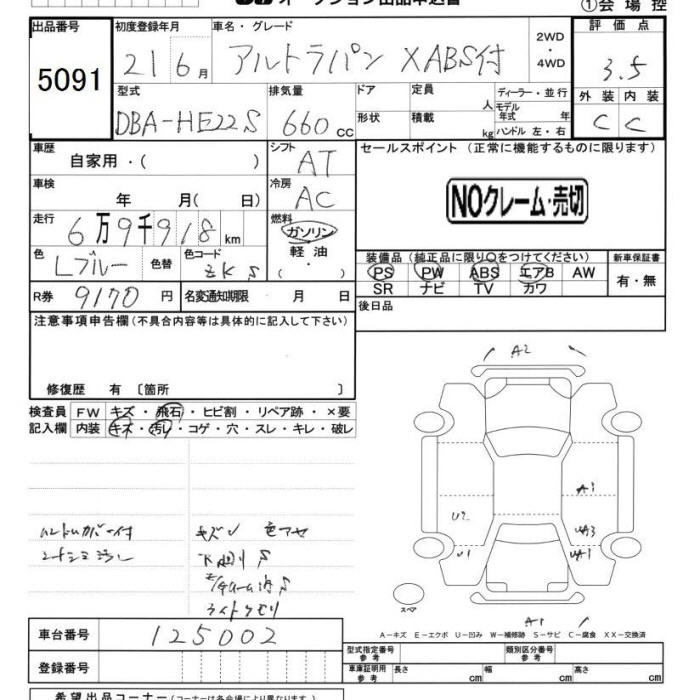 オークション出品申込書
①会場控
出品番号 5091
初度登録年月 21 6月
車名・グレード アルトラパン XABS付
2WD・4WD
評価点 3.5
型式 DBA-HE22S
排気量 660 cc
ドア 形状
定員 人
積載 kg
ディーラー・並行
モデル年式 年
ハンドル 左・右
外装 C 内装 C
車歴 自家用・( )
シフト AT
セールスポイント(正常に機能するものに限ります)
車検 年 月( 日)
冷房 AC
NOクレーム・売切
走行 6万9千918km
燃料 ガソリン 軽油・( )
色 Lブルー 色替 色コード ZKS
装備品(純正品に限り○をつけてください)
新車保証書 有・無
PS PW ABS エアB AW
SR ナビ TV カワ
R券 9170円
名変通知期限 月 日
後日品
注意事項申告欄(不具合内容等は具体的に記入して下さい)
修復歴 有〔箇所 〕
検査員記入欄
FW キズ・飛石・ヒビ割・リペア跡・×要
内装 キズ・汚レ・コゲ・穴・スレ・キレ・破レ
A2
A3
U2 UA3
U1 UA1
ハンドルカバー付 キズ 色アセ
シートシミ 汚レ 下廻りS
ライトクモリ
スペア
A1
A-キズ E-エクボ U-凹み W-補修跡 S-サビ C-腐食 XX-交換済
車台番号 125002
型式指定番号 参考
類別区分番号 参考
登録番号
車庫証明用 参考 長さ cm 幅 cm 高さ cm
希望出品コーナー(コーナーは各会場により異なります)